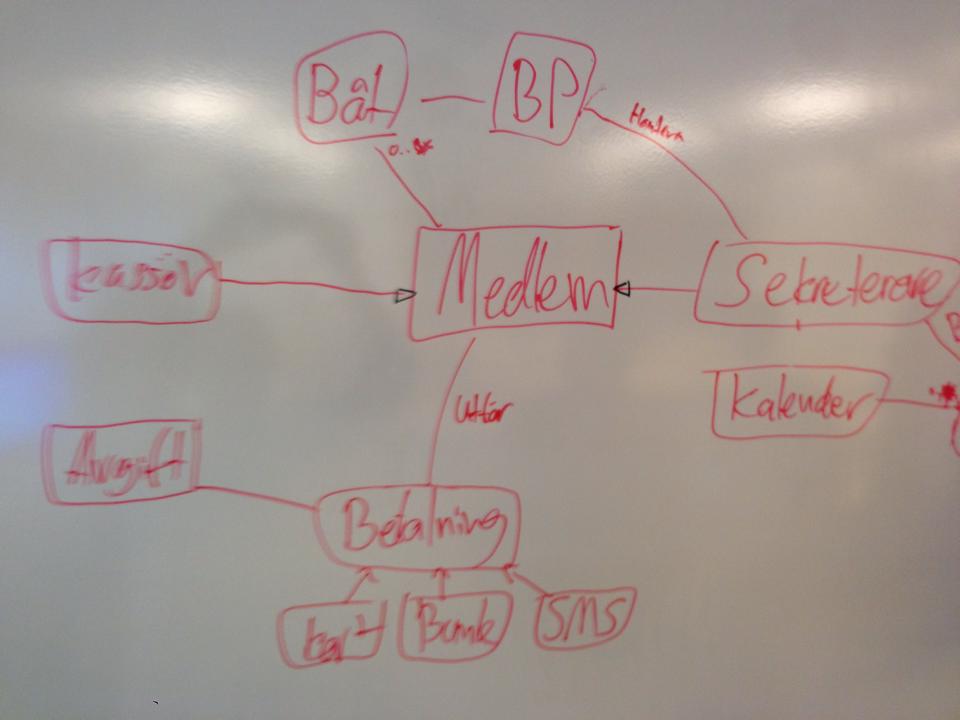 Båt
BP
0..*
Hantera
kassör
Medlem
Sekreterare
Kalender
Utför
Avgift
Betalning
kort
Bank
SMS